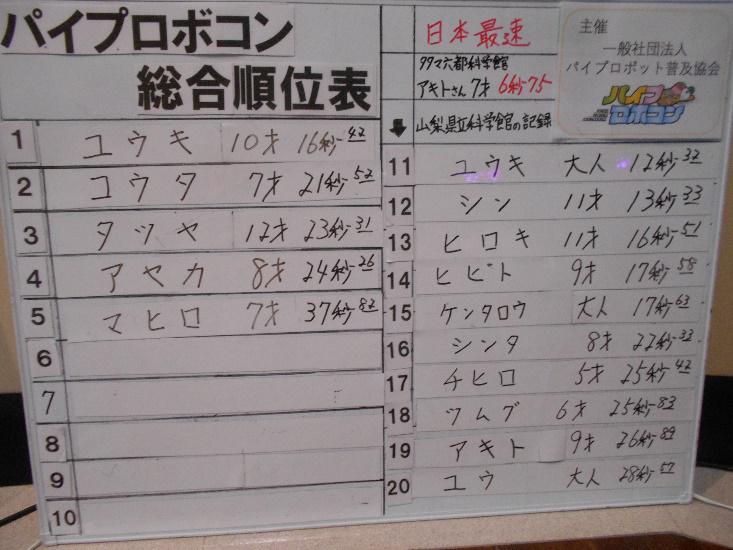 パイプロボコン
総合順位表
1 ユウキ 10才 16秒42
2 コウタ 7才 21秒52
3 タツヤ 12才 23秒31
4 アヤカ 8才 24秒26
5 マヒロ 7才 37秒82
6
7
8
9
10
日本最速
タタマ六都科学館
アキトさん 7才 6秒75
山梨県立科学館の記録
主催
一般社団法人
パイプロボット普及協会
パイプ
ロボコン
11 ユウキ 大人 12秒32
12 シン 11才 13秒33
13 ヒロキ 11才 16秒51
14 ヒビト 9才 17秒58
15 ケンタロウ 大人 17秒63
16 シンタ 8才 22秒33
17 チヒロ 5才 25秒42
18 ツムグ 6才 25秒83
19 アキト 9才 26秒89
20 ユウ 大人 28秒57